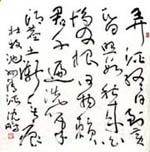 弄溪終日到黃
昏照數秋來白
髮根何物賴
君千遍洗筆
頭塵土漸無痕
杜牧池州清溪 沈鵬